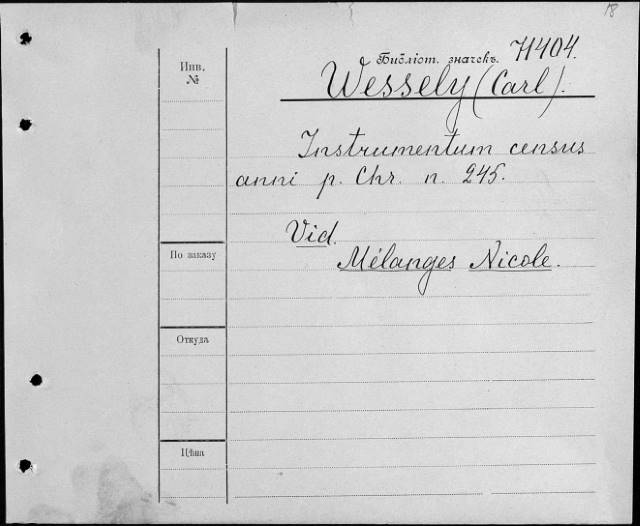 18
Библіот. значекъ. 71404.
Инв.
№
Wessely (Carl).
Instrumentum census
anni p. Chr. n. 245.
Vid.
Mélanges Nicole.
По заказу
Откуда
Цѣна